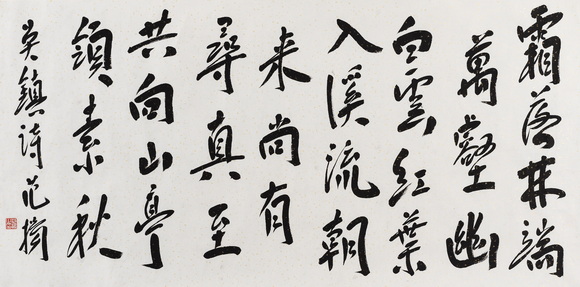 霜落林端
萬壑幽
白雲紅葉
入溪流朝
来尚有
尋真至
共向山亭
領素秋
吴鎮诗范